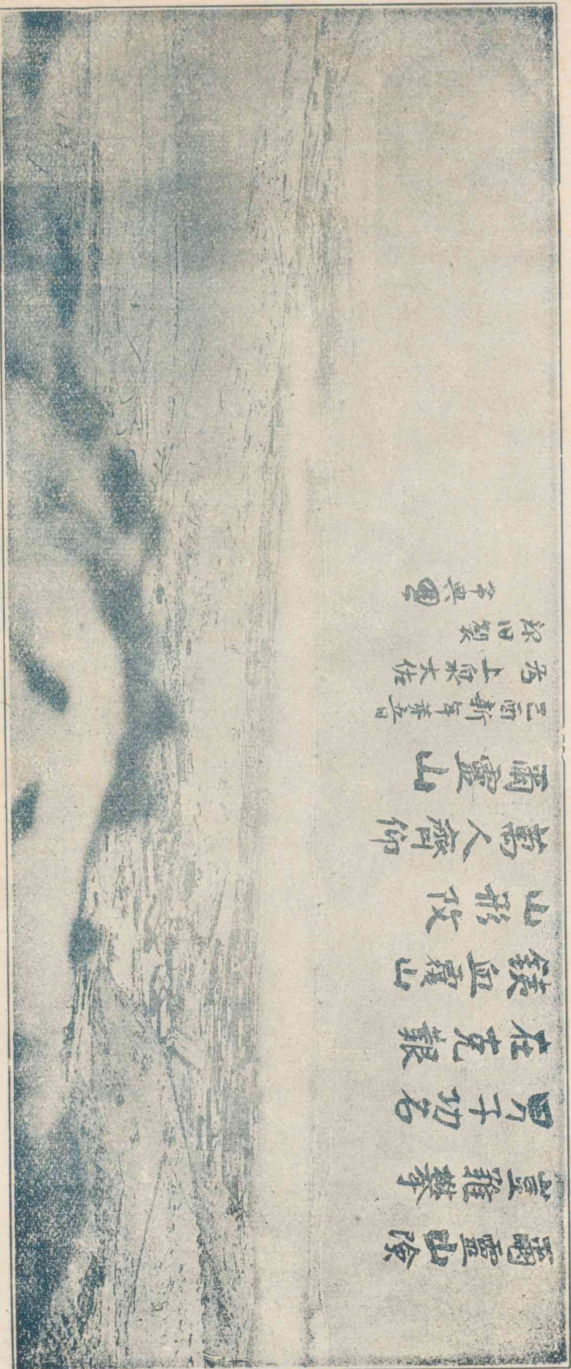 爾靈山險
豈難攀
男子功名
在克艱
鐵血覆山
山形改
萬人齊仰
爾靈山
己酉新年第五日
為上泉大佐
旧製
希典